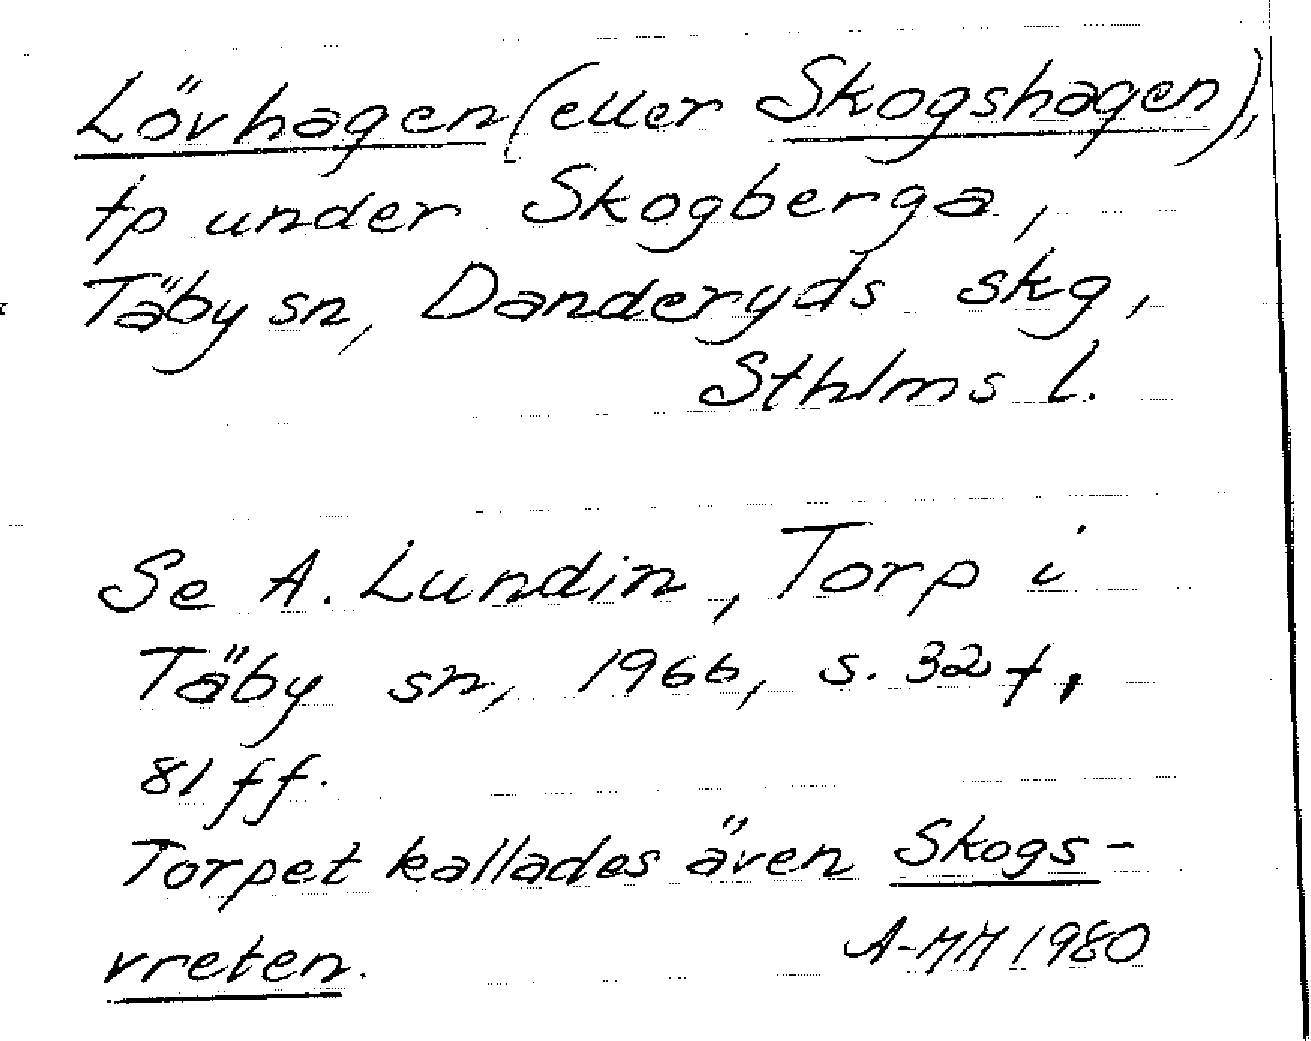 Lövhagen (eller Skogshagen),
tp under Skogberga,
Täby sn, Danderyds skg,
Sthlms l.
Se A. Lundin, Torp i
Täby sn, 1966, s. 32 f,
81 ff.
Torpet kallades även Skogs-
vreten.
A-MM 1980